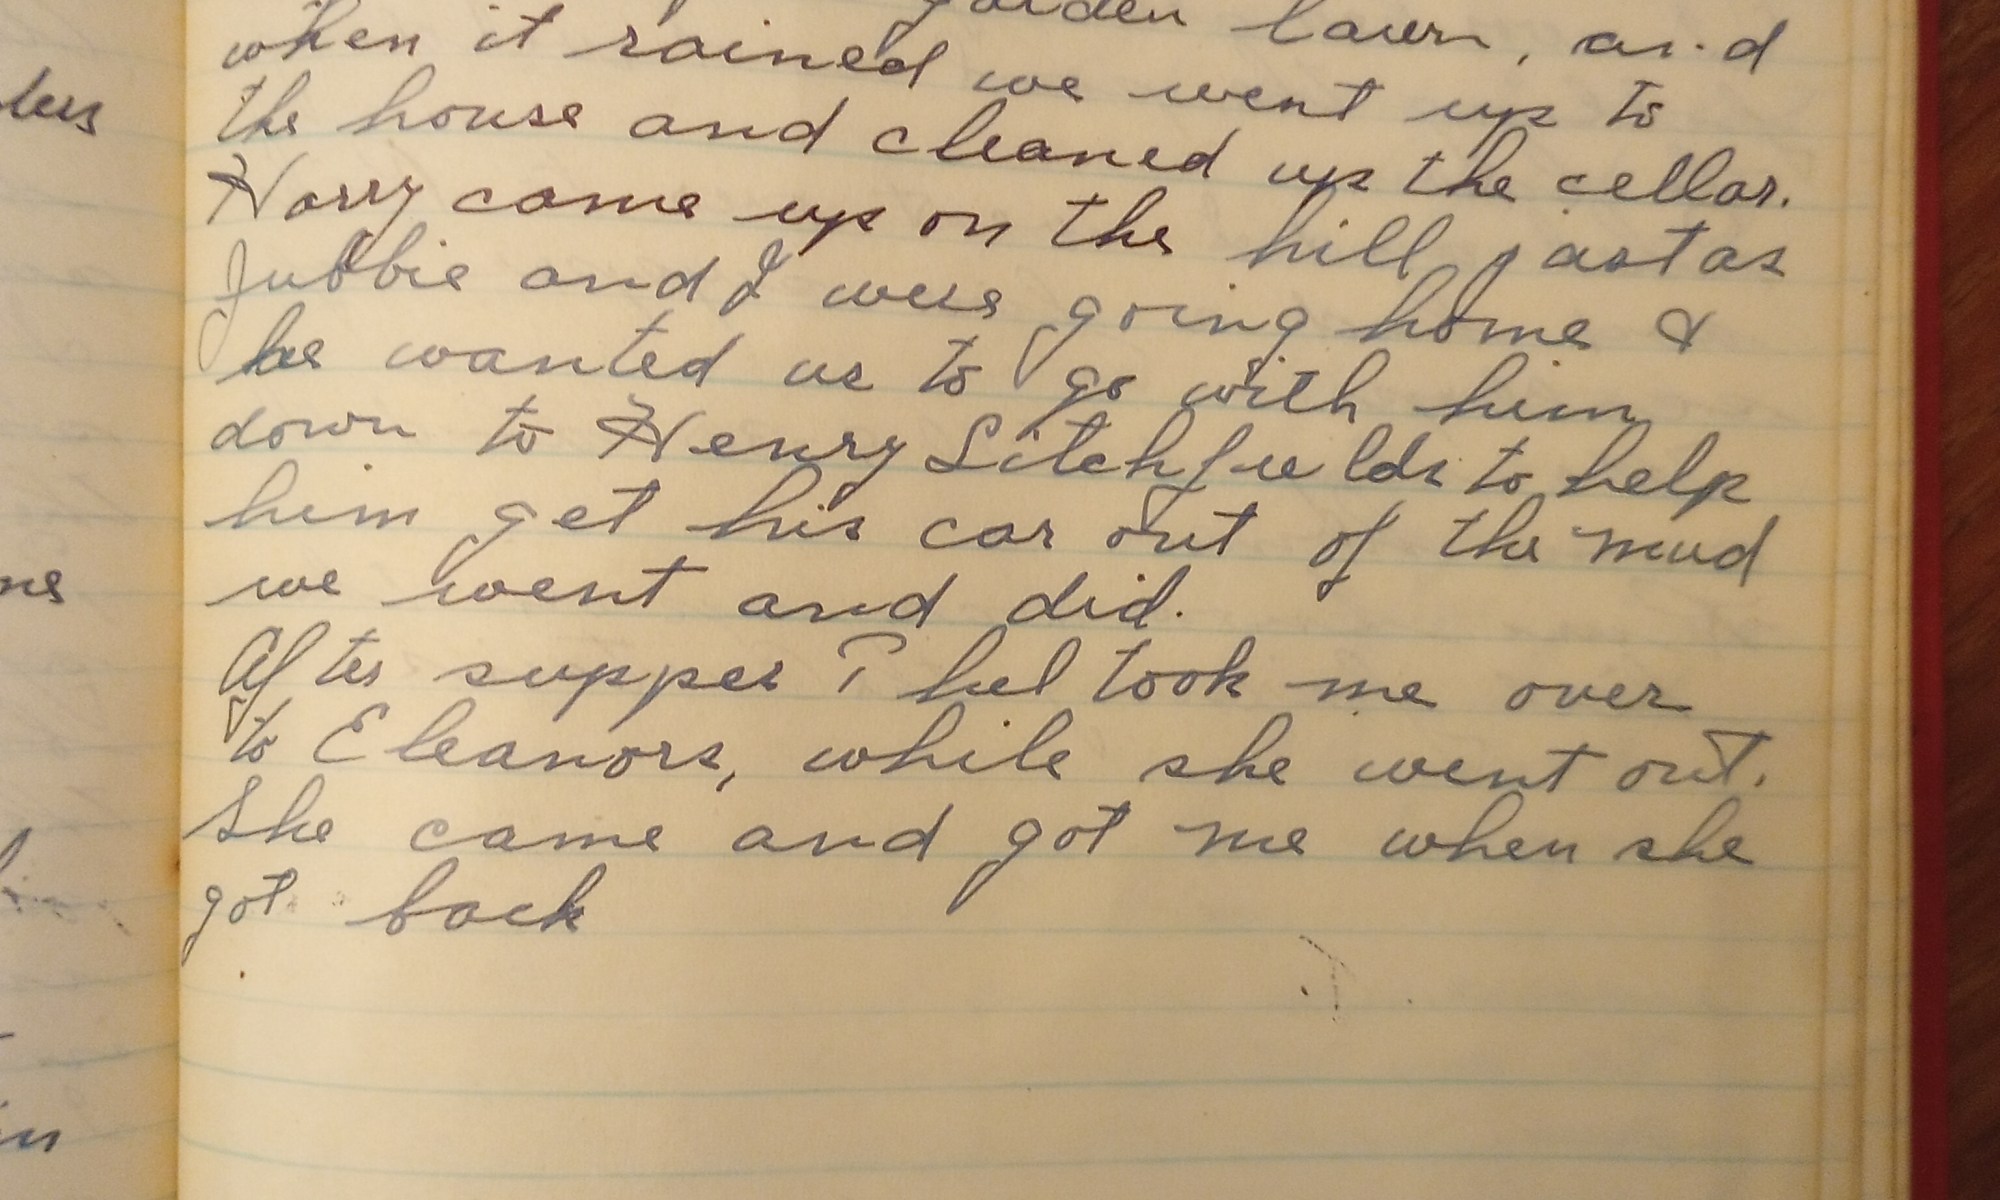 garden lawn, and
when it rained we went up to
the house and cleaned up the cellar.
Harry came up on the hill just as
Jubbie and I were going home &
he wanted us to go with him
down to Henry Litchfields to help
him get his car out of the mud
we went and did.
After supper Phel took me over
to Eleanors, while she went out.
She came and got me when she
got back